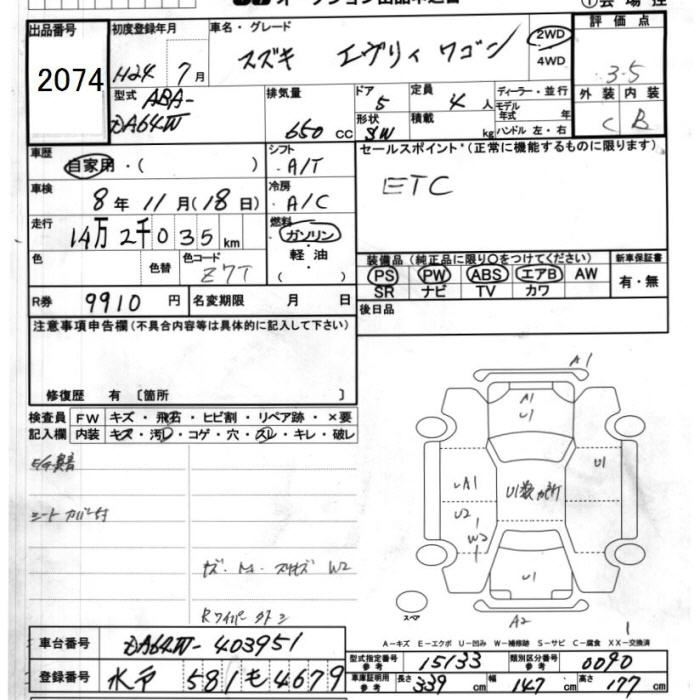 オークション出品申込書
①会場控
出品番号
2074
初度登録年月
H24 7月
車名・グレード
スズキ エヴリィ ワゴン
2WD
4WD
評価点
3.5
外装 内装
C B
型式
ABA-
DA64W
排気量
650 cc
ドア
5
形状
SW
定員
4 人
積載
kg
ディーラー・並行
モデル
年式 年
ハンドル 左・右
車歴
自家用・( )
シフト
A/T
車検
8年 11月(18日)
冷房
A/C
走行
14万2千035km
燃料
ガソリン
軽油
( )
色
色替
色コード
Z7T
R券
9910円
名変期限 月 日
セールスポイント(正常に機能するものに限ります)
ETC
装備品(純正品に限り○をつけてください)
PS PW ABS エアB AW
SR ナビ TV カワ
新車保証書
有・無
後日品
注意事項申告欄(不具合内容等は具体的に記入して下さい)
修復歴 有〔箇所 〕
検査員
記入欄
FW キズ・飛石・ヒビ割・リペア跡・×要
内装 キズ・汚レ・コゲ・穴・スレ・キレ・破レ
シートカバー付
W2
A1
A1
U1
A1
U2
W2
U1
U1
U1
A2
スペア
1
A-キズ E-エクボ U-凹み W-補修跡 S-サビ C-腐食 XX-交換済
車台番号
DA64W-403951
登録番号
水戸 581 も 4679
型式指定番号
参考
15133
類別区分番号
参考
0090
車庫証明用
参考
長さ 339 cm
幅 147 cm
高さ 177 cm